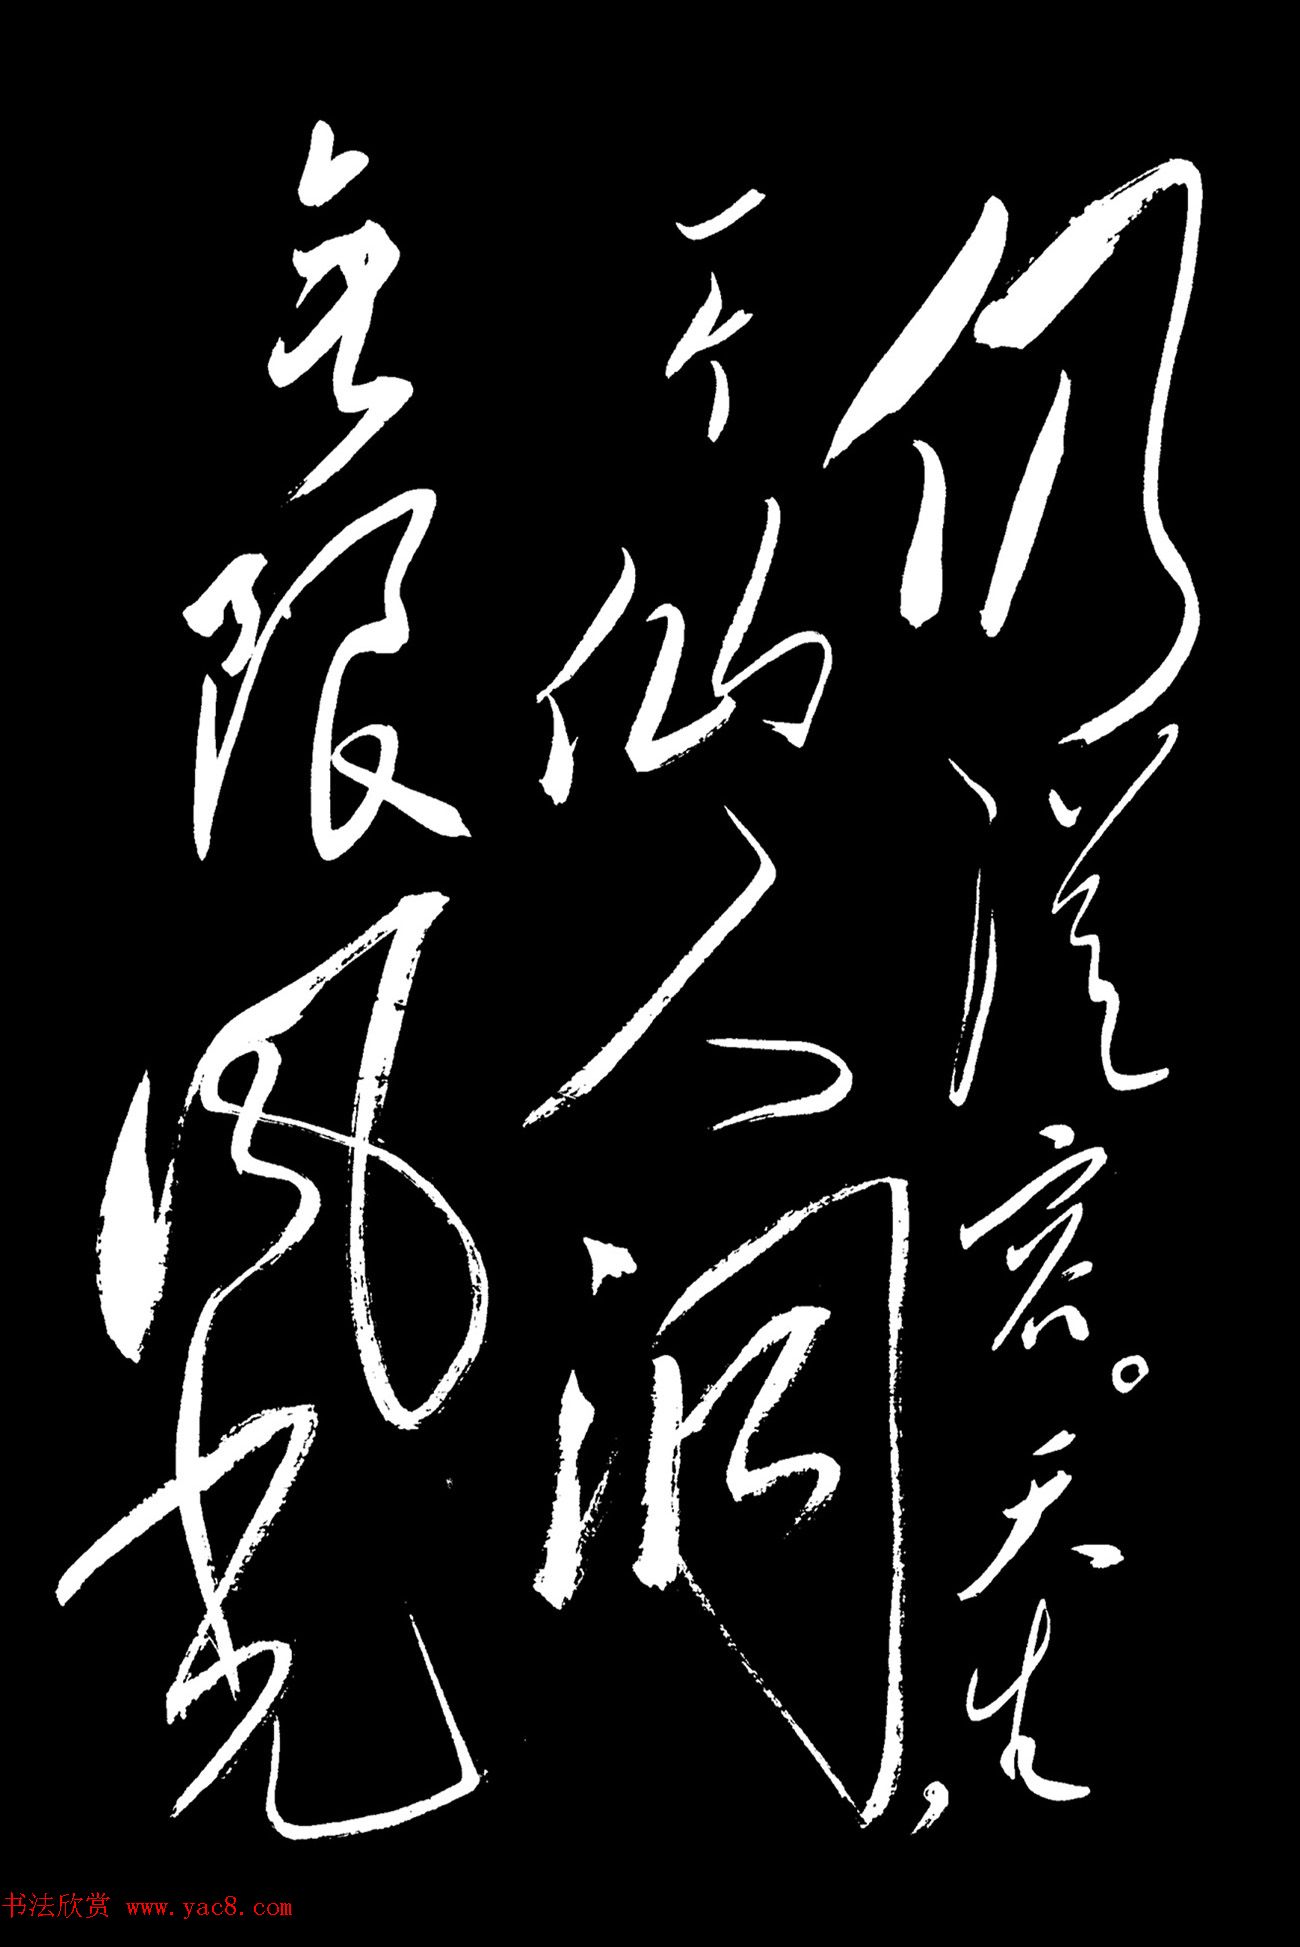 仍從容。天生
一个仙人洞，
无限風光
书法欣赏 www.yac8.com